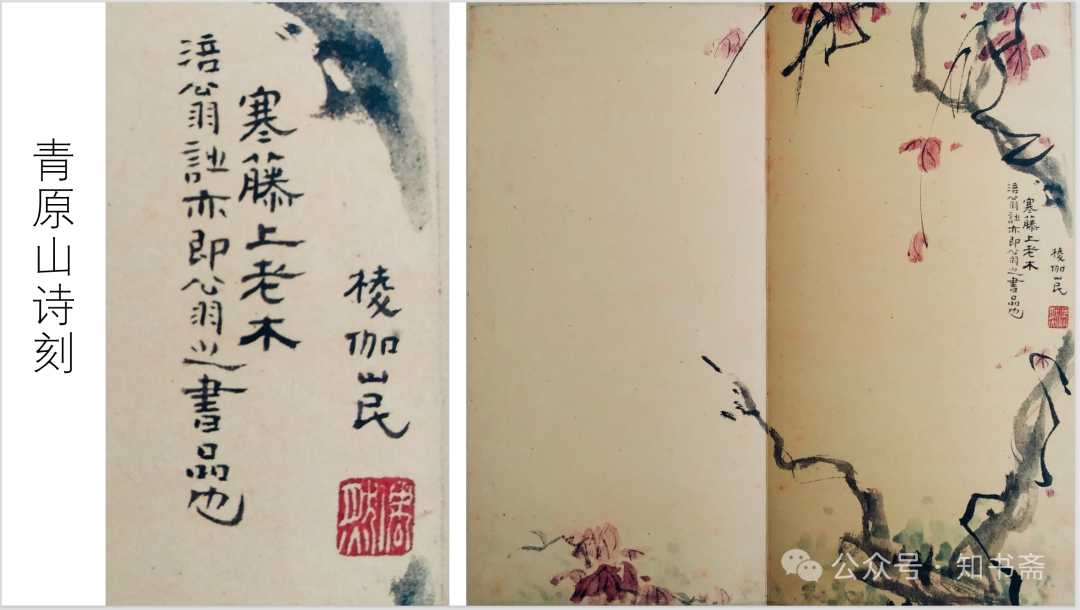 青原山诗刻
棱伽山民
寒藤上老木
涪翁詩亦即翁之書品也
棱伽山民
寒藤上老木
涪翁詩亦即翁之書品也
公众号·知书斋